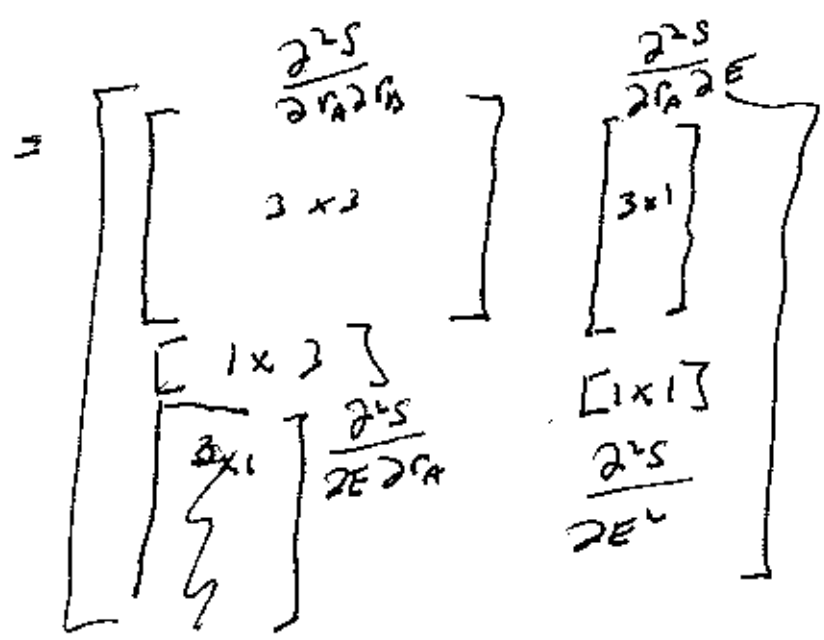 ∂²S/∂r_A∂r_B ∂²S/∂r_A∂E
= [ [ 3 × 3 ] [ 3×1 ]
[ 1 × 3 ] [1×1]
∂²S/∂E∂r_A ∂²S/∂E² ]